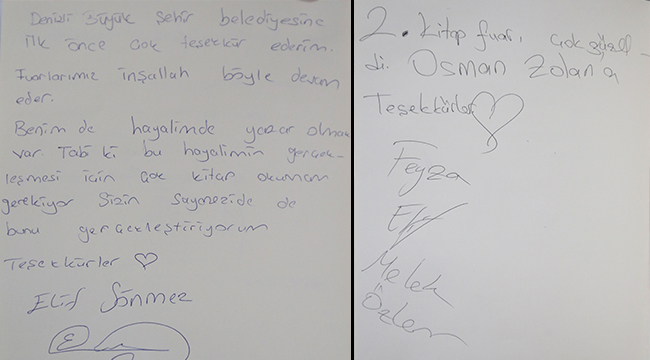 Denizli Büyük şehir belediyesine
ilk önce çok teşekkür ederim.
Fuarlarımız inşallah böyle devam
eder.
Benim de hayalimde yazar olmak
var. Tabi ki bu hayalimin gerçek-
leşmesi için çok kitap okumam
gerekiyor Sizin sayenizide de
bunu gerçekleştiriyorum
Teşekkürler
Elif Sönmez
2. Kitap fuarı çok güzel
di. Osman Zolan a
Teşekkürler
Feyza
Elif
Melek
Özlem